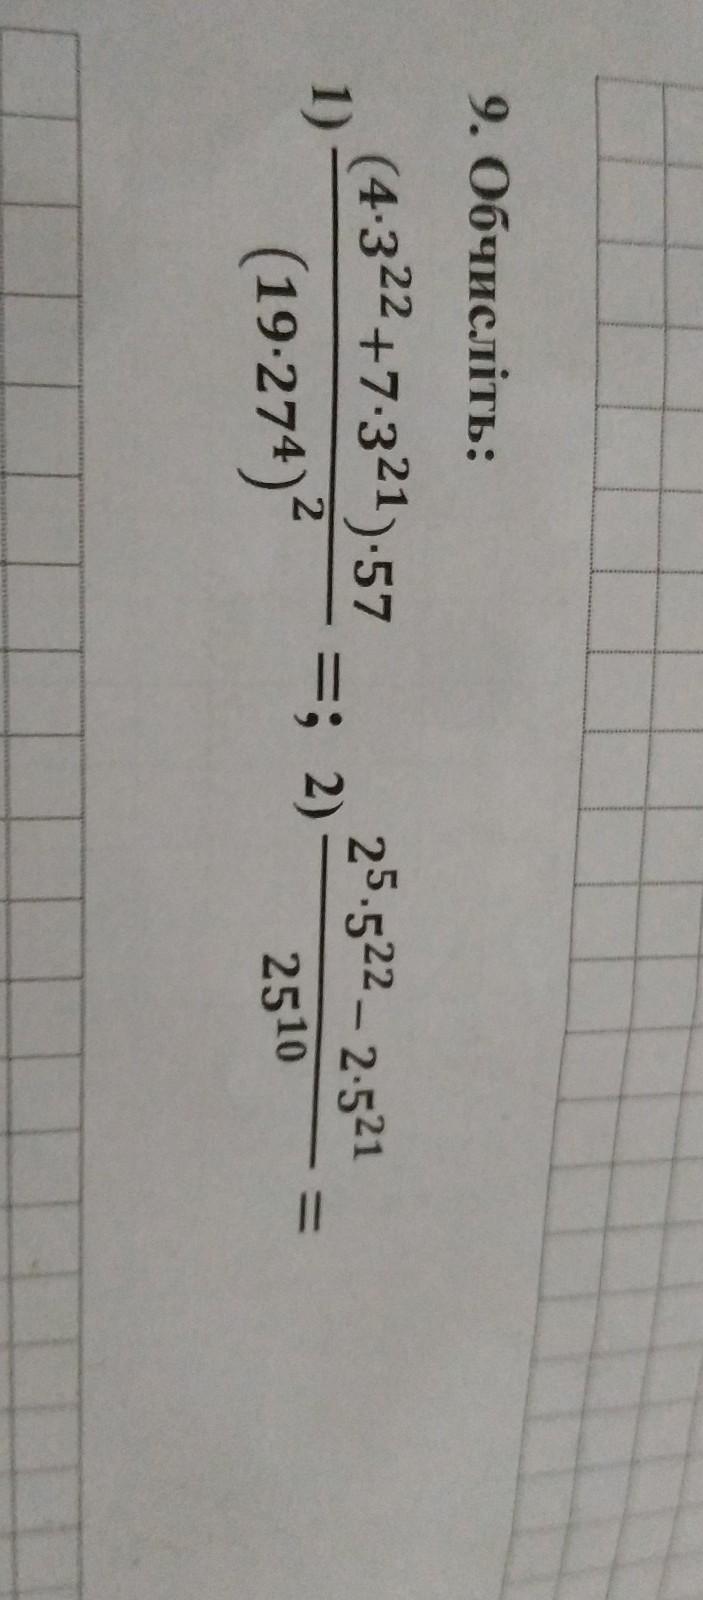 9. Обчисліть:
1) \frac{(4·3^{22}+7·3^{21})·57}{(19·27^4)^2} =; 2) \frac{2^5·5^{22}−2·5^{21}}{25^{10}} =